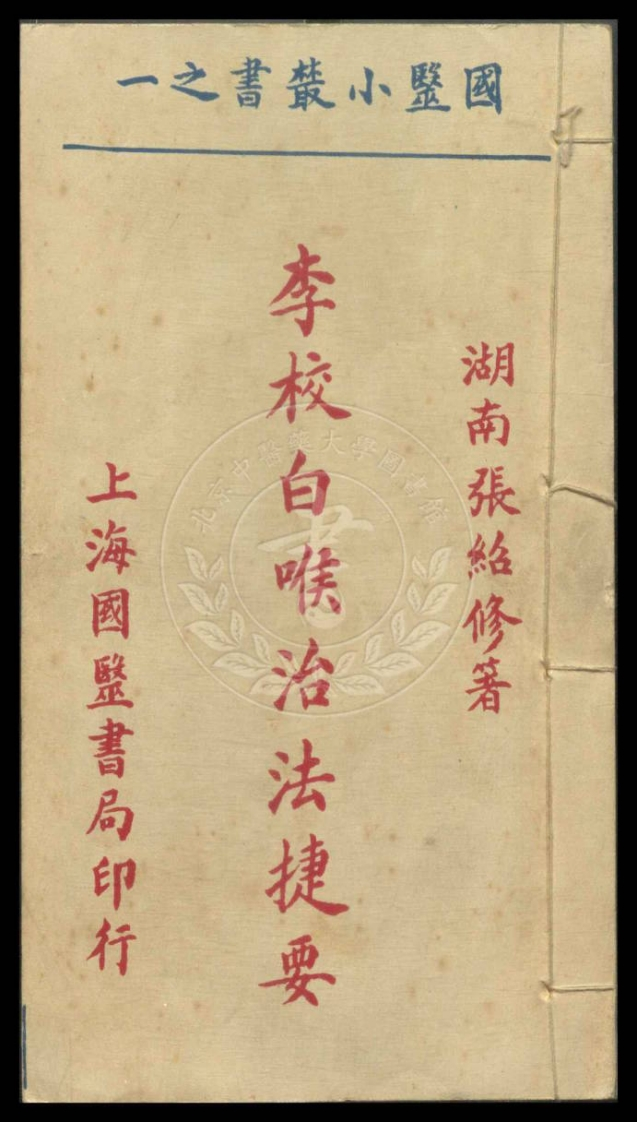 國毉小叢書之一
湖南張紹修著
李校白喉治法捷要
上海國毉書局印行
北京中醫藥大學圖書館
書